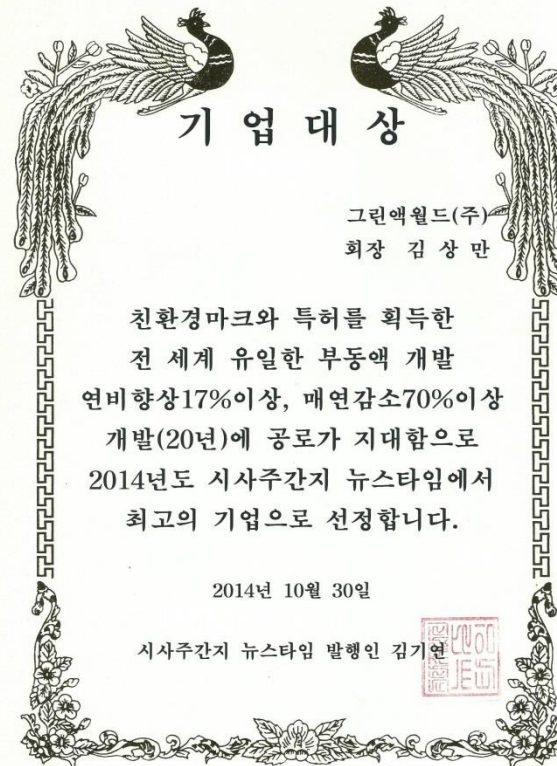 기업대상
그린액월드(주)
회장 김상만
친환경마크와 특허를 획득한
전 세계 유일한 부동액 개발
연비향상17%이상, 매연감소70%이상
개발(20년)에 공로가 지대함으로
2014년도 시사주간지 뉴스타임에서
최고의 기업으로 선정합니다.
2014년 10월 30일
시사주간지 뉴스타임 발행인 김기연